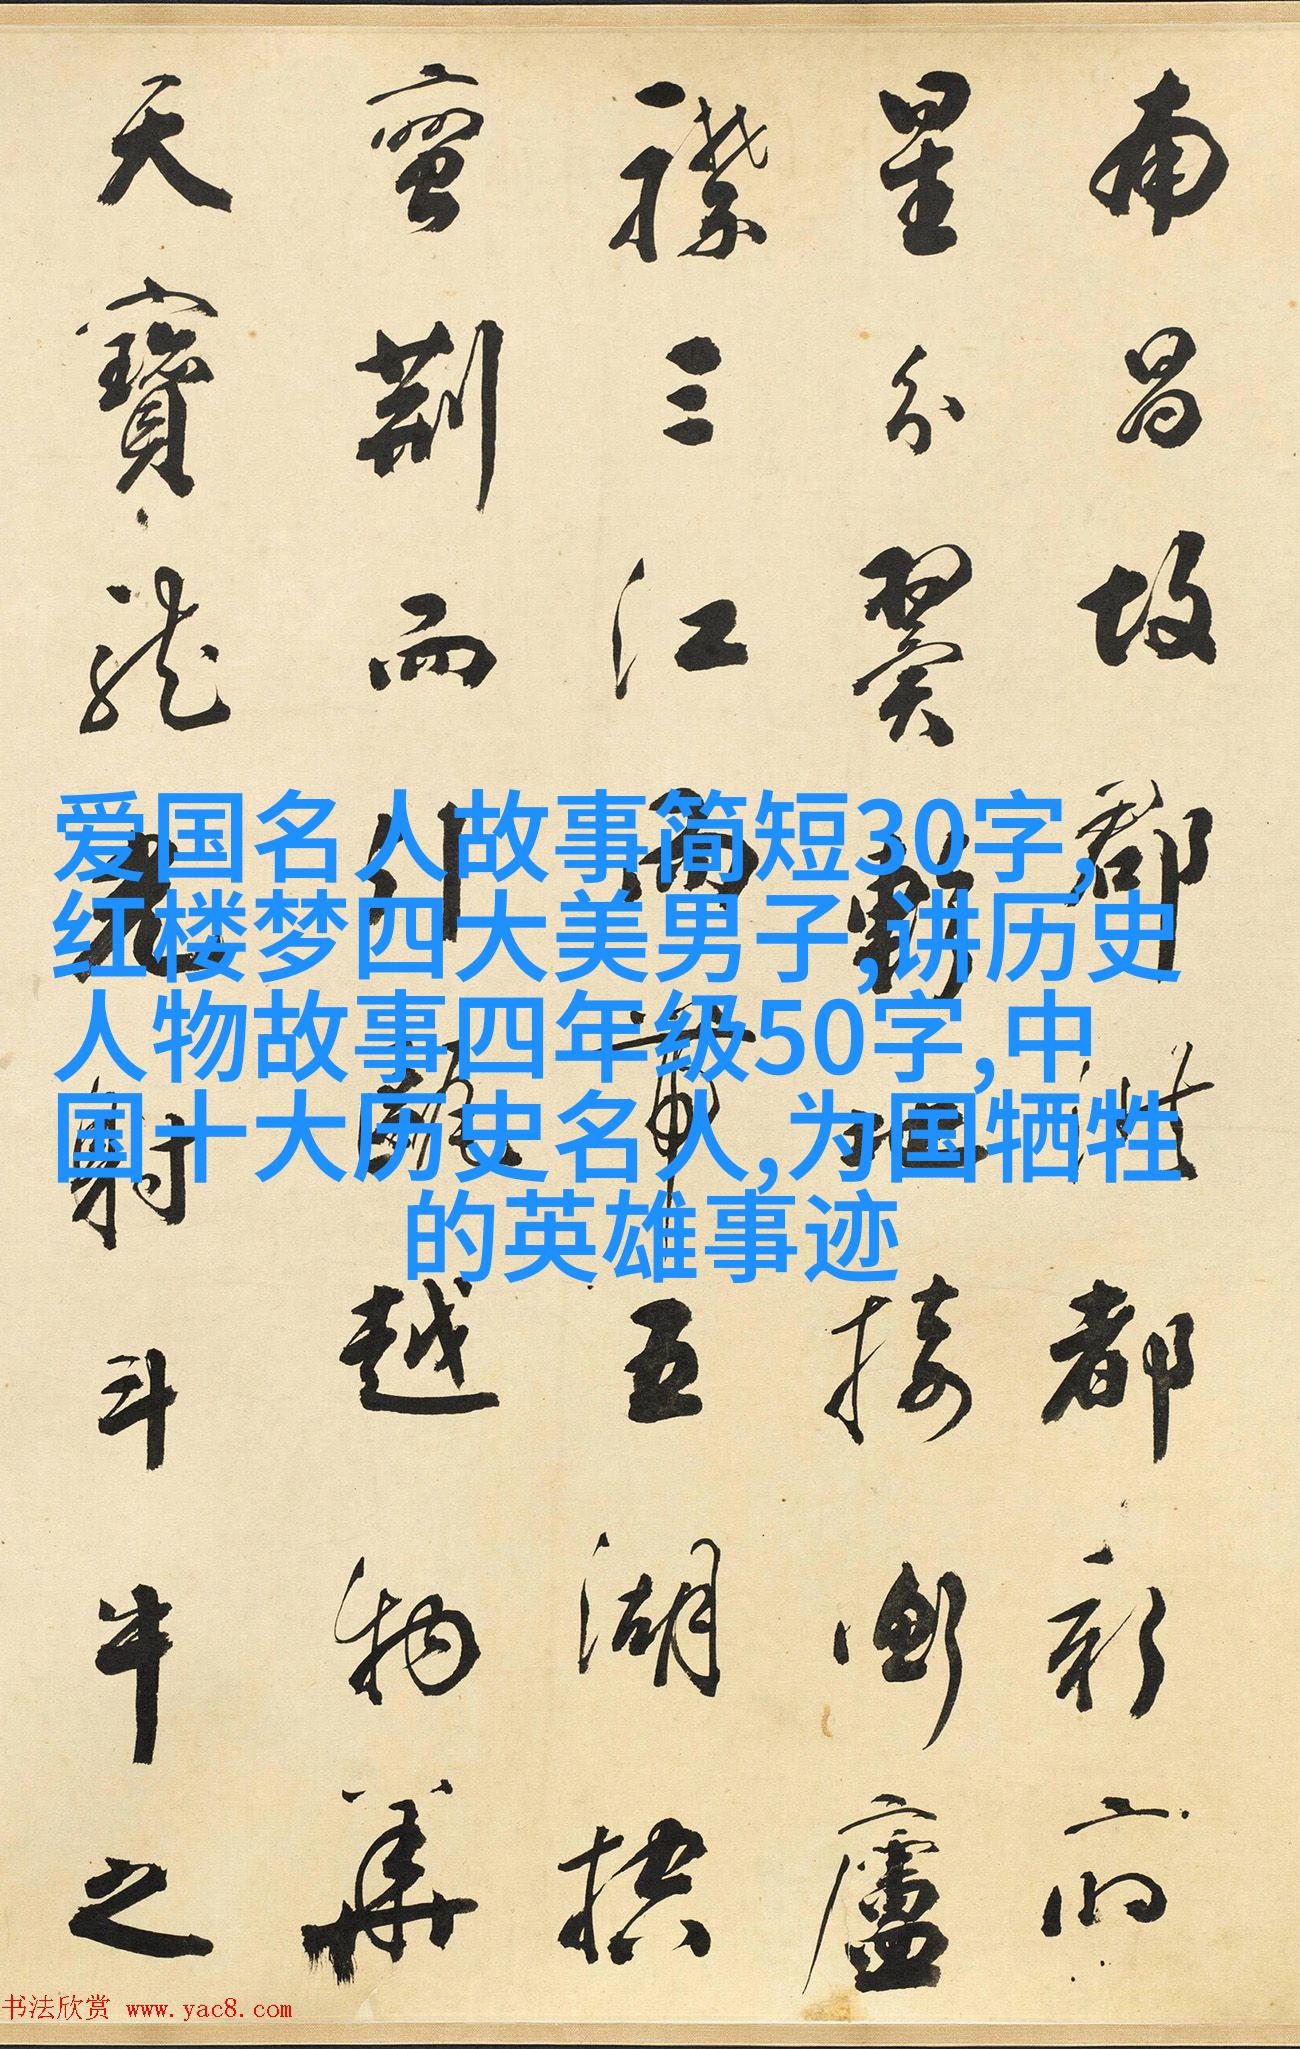 南昌故郡洪都新府
星分翼軫地接衡廬
襟三江而帶五湖控
蠻荊而引甌越物華
天寶龍光射斗牛之
爱国名人故事简短30字,
红楼梦四大美男子,讲历史
人物故事四年级50字,中
国十大历史名人,为国牺牲
的英雄事迹
书法欣赏 www.yac8.com